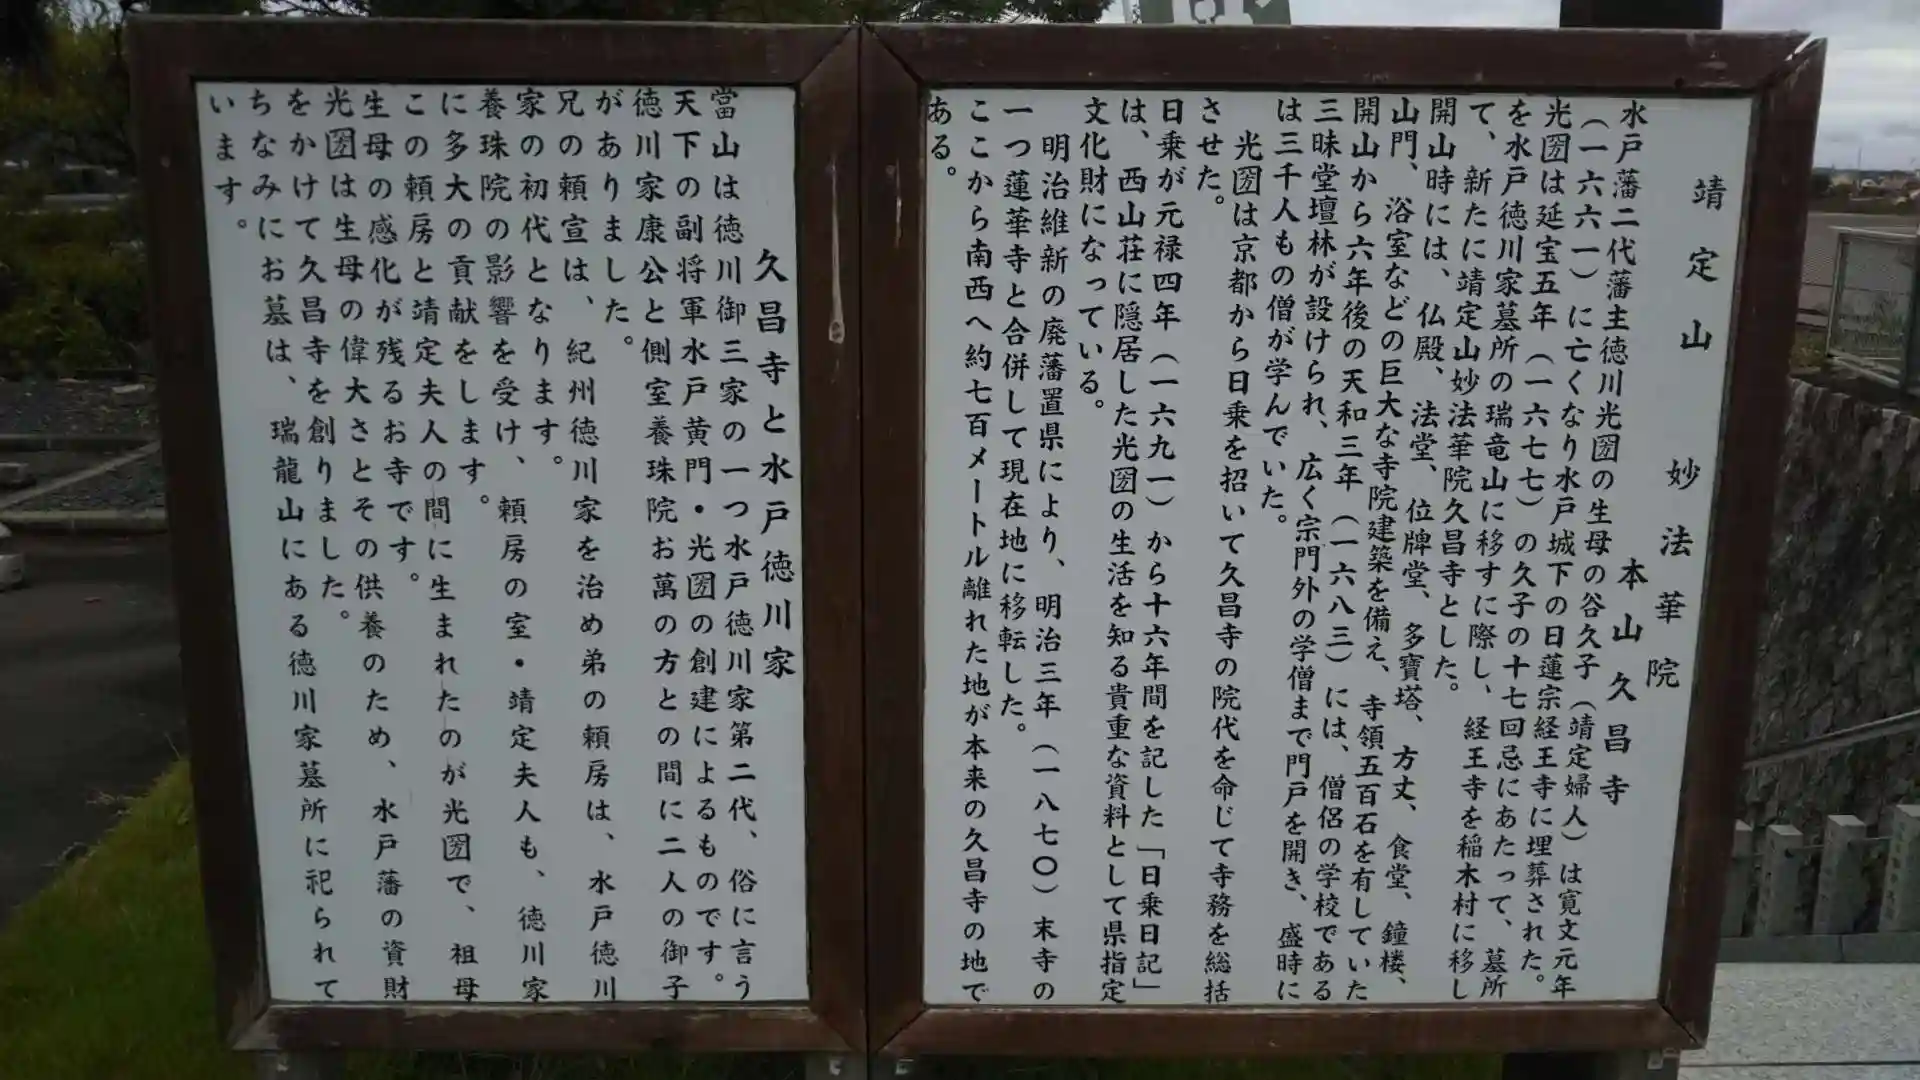 靖定山 妙法華院
本山久昌寺
水戸藩二代藩主徳川光圀の生母の谷久子（靖定婦人）は寛文元年
（一六六一）に亡くなり水戸城下の日蓮宗経王寺に埋葬された。
光圀は延宝五年（一六七七）の久子の十七回忌にあたって、墓所
を水戸徳川家墓所の瑞竜山に移すに際し、経王寺を稲木村に移し
て、新たに靖定山妙法華院久昌寺とした。
開山時には、仏殿、法堂、位牌堂、多寶塔、方丈、食堂、鐘楼、
山門、浴室などの巨大な寺院建築を備え、寺領五百石を有していた
開山から六年後の天和三年（一六八三）には、僧侶の学校である
三昧堂壇林が設けられ、広く宗門外の学僧まで門戸を開き、盛時に
は三千人もの僧が学んでいた。
光圀は京都から日乗を招いて久昌寺の院代を命じて寺務を総括
させた。
日乗が元禄四年（一六九一）から十六年間を記した「日乗日記」
は、西山荘に隠居した光圀の生活を知る貴重な資料として県指定
文化財になっている。
明治維新の廃藩置県により、明治三年（一八七〇）末寺の
一つ蓮華寺と合併して現在地に移転した。
ここから南西へ約七百メートル離れた地が本来の久昌寺の地で
ある。
久昌寺と水戸徳川家
當山は徳川御三家の一つ水戸徳川家第二代、俗に言う
天下の副将軍水戸黄門・光圀の創建によるものです。
徳川家康公と側室養珠院お萬の方との間に二人の御子
がありました。
兄の頼宣は、紀州徳川家を治め弟の頼房は、水戸徳川
家の初代となります。
養珠院の影響を受け、頼房の室・靖定夫人も、徳川家
に多大の貢献をします。
この頼房と靖定夫人の間に生まれたのが光圀で、祖母
生母の感化が残るお寺です。
光圀は生母の偉大さとその供養のため、水戸藩の資財
をかけて久昌寺を創りました。
ちなみにお墓は、瑞龍山にある徳川家墓所に祀られて
います。